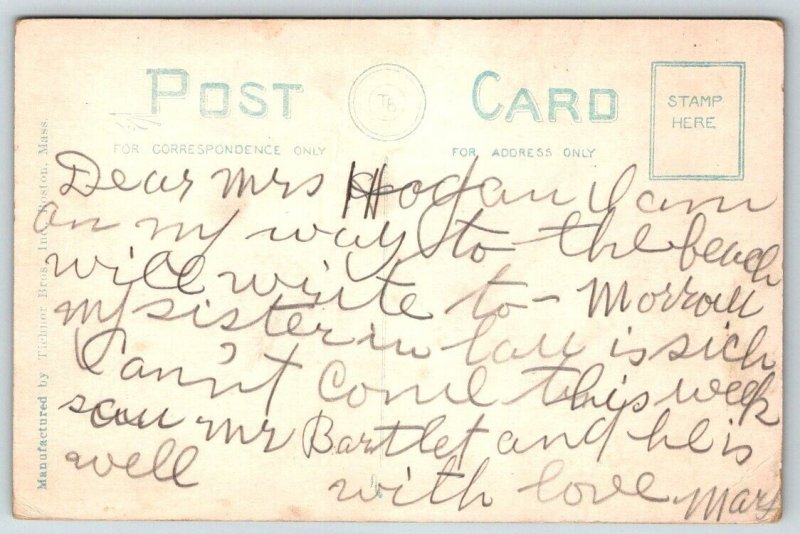 POST CARD
TB
STAMP
HERE
FOR CORRESPONDENCE ONLY
FOR ADDRESS ONLY
Manufactured by Tichnor Bros. Inc. Boston, Mass.
Dear Mrs Hogan I am
on my way to the beach
will write to-Morrow
my sister in law is sick
Cann't come this week
saw Mr Bartlet and he is
well
with love Mary